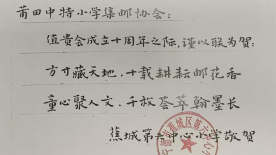 莆田中特小学集邮协会：
值贵会成立十周年之际，谨以联为贺：
方寸藏天地．十载耕耘邮花香
童心聚人文．千枚荟萃翰墨长
蕉城第六中心小学敬贺